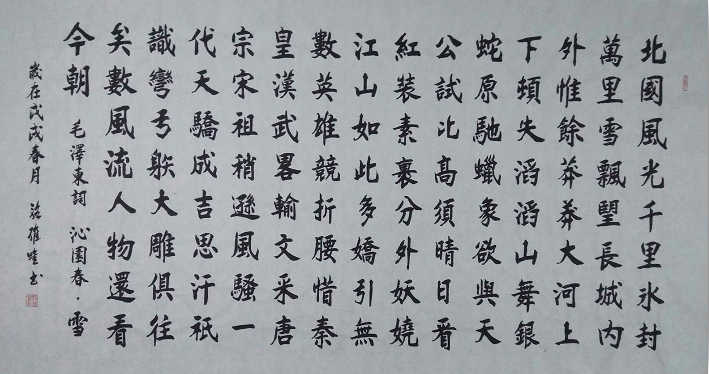 北國風光千里氷封
萬里雪飄朢長城内
外惟餘莽莽大河上
下頓失滔滔山舞銀
蛇原馳蠟象欲與天
公試比高須晴日看
紅裝素裹分外妖嬈
江山如此多嬌引無
數英雄競折腰惜秦
皇漢武畧輸文采唐
宗宋祖稍遜風騷一
代天驕成吉思汗祇
識彎弓躲大雕俱往
矣數風流人物還看
今朝 毛澤東詞 沁園春·雪
歲在戊戌春月 雄 書